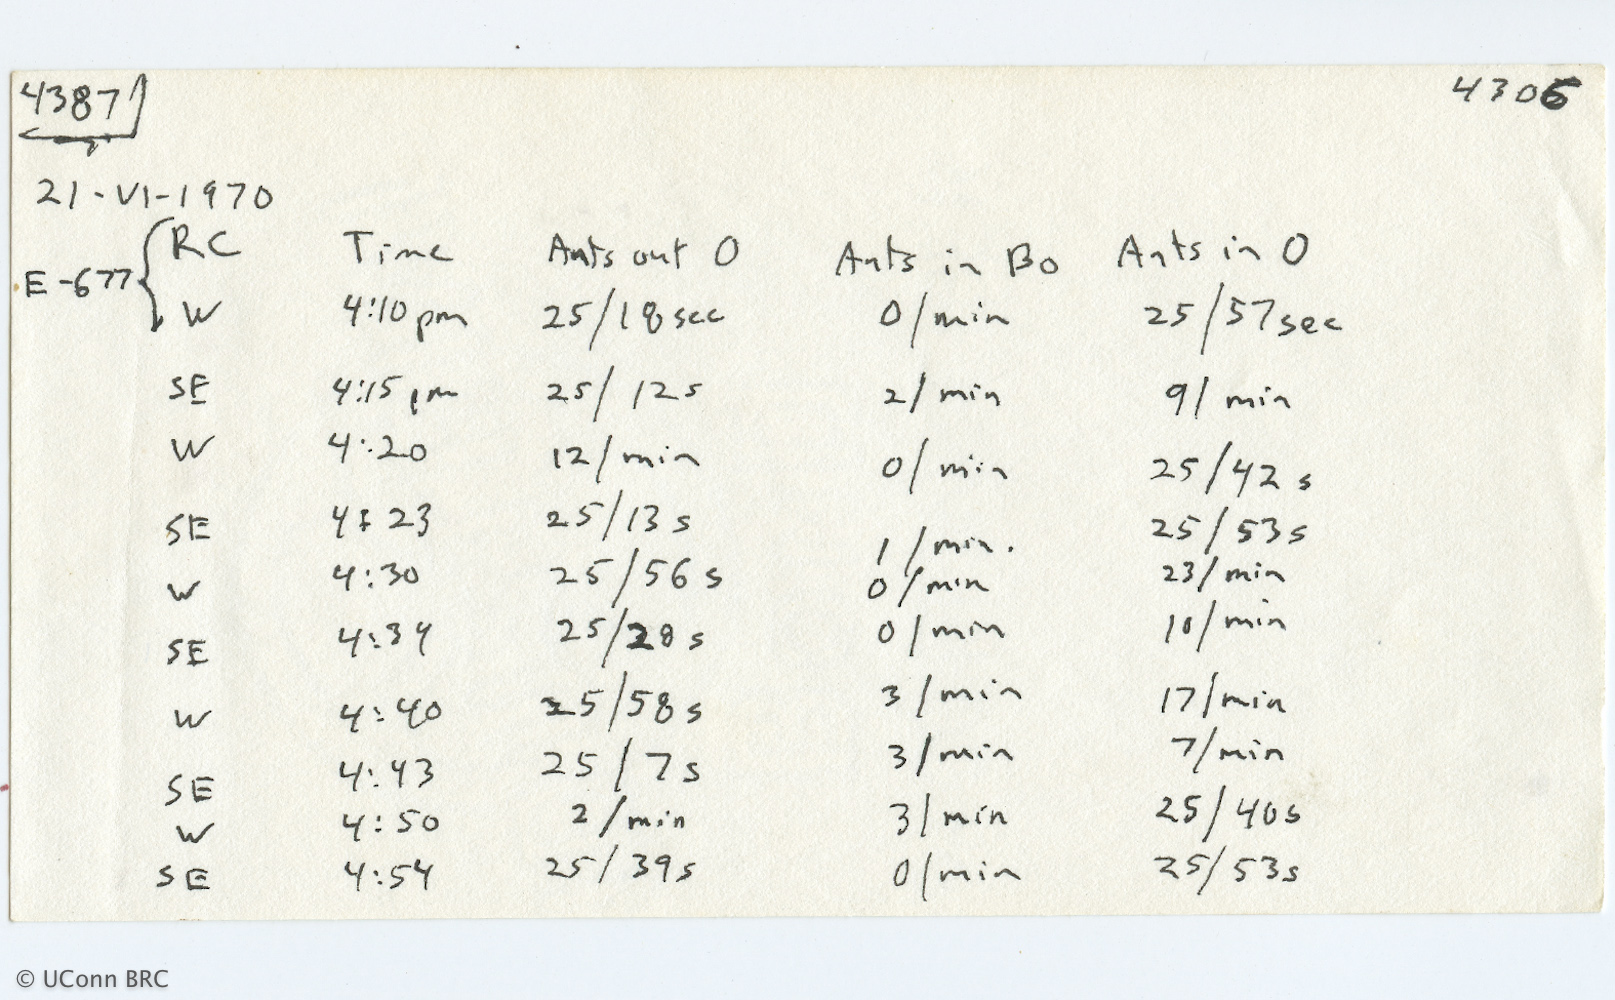 4387 4306
21-VI-1970
RC Time Ants out O Ants in Bo Ants in O
E-677
W 4:10 pm 25/18 sec 0/min 25/57 sec
SE 4:15 pm 25/12 s 2/min 9/min
W 4:20 12/min 0/min 25/42 s
SE 4:23 25/13 s 1/min. 25/53 s
W 4:30 25/56 s 0/min 23/min
SE 4:34 25/28 s 0/min 10/min
W 4:40 25/58 s 3/min 17/min
SE 4:43 25/7 s 3/min 7/min
W 4:50 2/min 3/min 25/40 s
SE 4:54 25/39 s 0/min 25/53 s
© UConn BRC